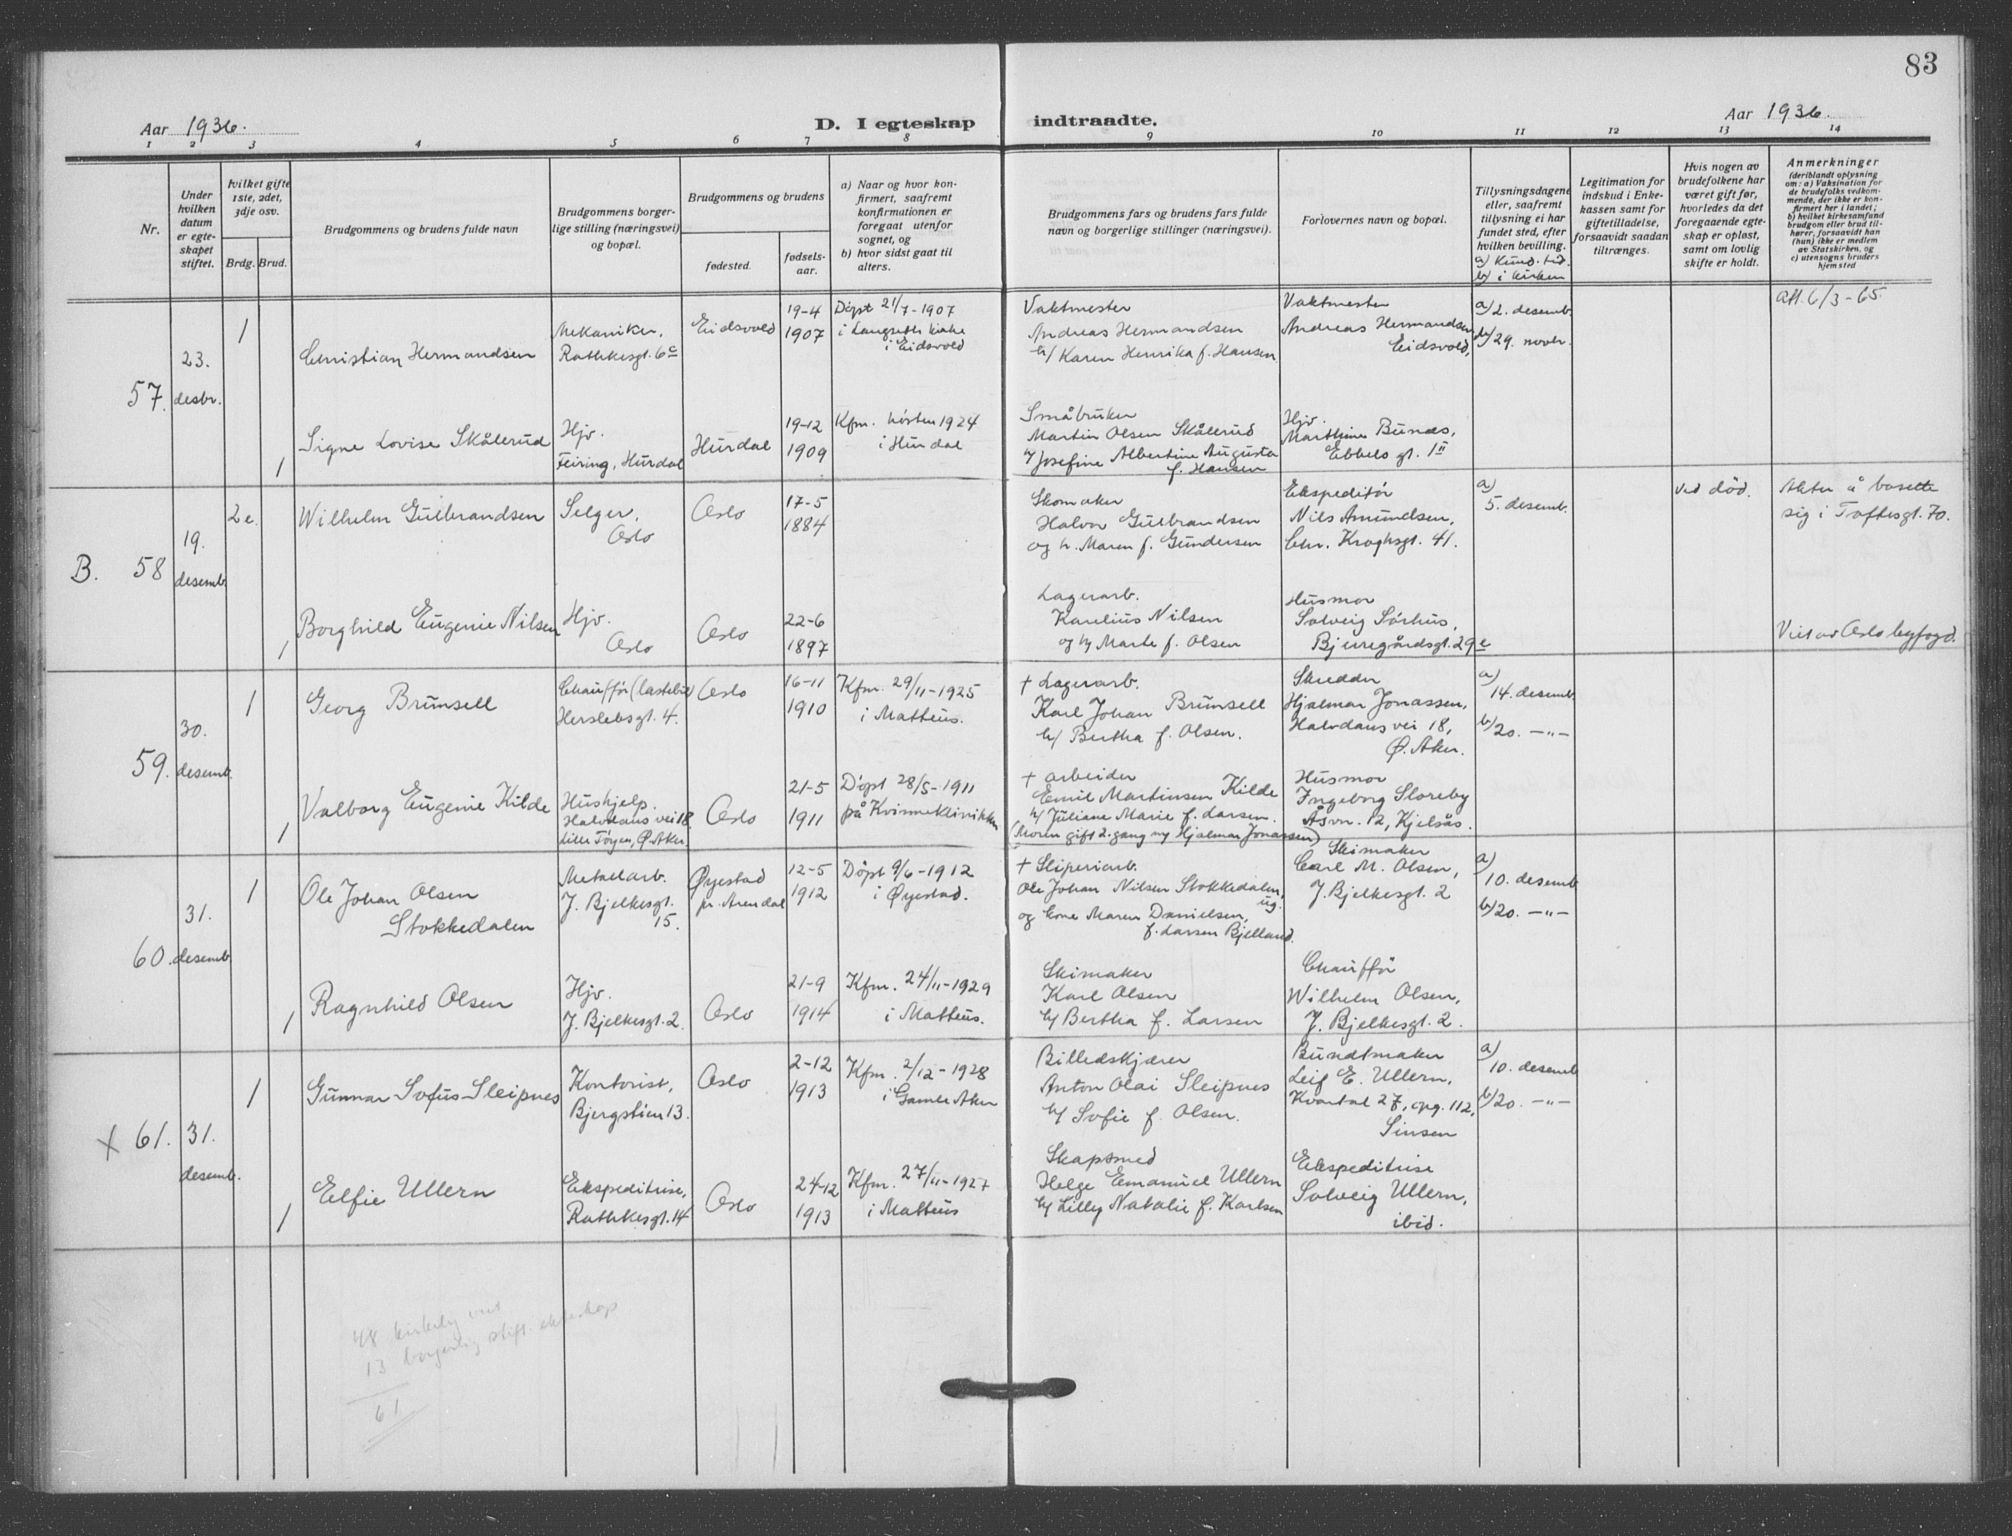 83
Aar 1936.
D. I egteskap indtraadte.
Aar 1936.
1 2 3 4 5 6 7 8 9 10 11 12 13 14
Nr.
Under hvilken datum er egteskapet stiftet.
hvilket gifte 1ste, 2det, 3dje osv.
Brdg. Brud.
Brudgommens og brudens fulde navn
Brudgommens borgerlige stilling (næringsvei) og bopæl.
Brudgommens og brudens
fødested.
fødselsaar.
a) Naar og hvor konfirmert, saafremt konfirmationen er foregaat utenfor sognet, og
b) hvor sidst gaat til alters.
Brudgommens fars og brudens fars fulde navn og borgerlige stillinger (næringsvei).
Forlovernes navn og bopæl.
Tillysningsdagene eller, saafremt tillysning ei har fundet sted, efter hvilken bevilling.
a) Kund. tid.
b) i kirken
Legitimation for indskud i Enkekassen samt for giftetilladelse, forsaavidt saadan tiltrænges.
Hvis nogen av brudefolkene har været gift før, hvorledes da det foregaaende egteskap er opløst, samt om lovlig skifte er holdt.
Anmerkninger
(deriblandt oplysning om: a) Vaksination for de brudefolks vedkommende, der ikke er konfirmert her i landet; b) hvilket kirkesamfund brudgom eller brud tilhører, forsaavidt han (hun) ikke er medlem av Statskirken, og c) utensogns bruders hjemsted
57.
23.
desbr.
1
Christian Hermandsen
Mekaniker,
Rathkesgt. 6c
Eidsvold
19-4
1907
Døpt 21/7-1907
i Langseth kirke
i Eidsvold
Vaktmester
Andreas Hermandsen
h/ Karen Henrika f. Hansen
Vaktmester
Andreas Hermandsen
Eidsvold,
a) 2. desemb.
b) 29. novbr.
Att. 6/3-65.
1
Signe Lovise Skålerud
Hjv.
Feiring, Hurdal
Hurdal
19-12
1909
Kfm. høsten 1924
i Hurdal
Småbruker
Martin Olsen Skålerud
h/ Josefine Albertine Augusta
f. Hansen
Hjv.
Marthine Bunæs,
Ebbels gt. 1 II
B. 58
19.
desemb.
2e.
Wilhelm Gulbrandsen
Selger,
Oslo
Oslo
17-5
1884
Skomaker
Halvor Gulbrandsen
og h. Maren f. Gundersen
Ekspeditør
Nils Amundsen,
Chr. Kroghsgt. 41.
a)
5. desemb.
Ved død.
Akter å bosette
sig i Toftesgt. 70.
1
Borghild Eugenie Nilsen
Hjv.
Oslo
Oslo
22-6
1897
Lagerarb.
Karelius Nilsen
og h/ Marte f. Olsen
Husmor
Solveig Sørhus,
Bjuregårdsgt. 29e
Viet av Oslo byfogd.
59.
30.
desemb.
1
Georg Brunsell
Chauffør (lastebil)
Herslebsgt. 4.
Oslo
16-11
1910
Kfm. 29/11-1925
i Matteus.
+ Lagerarb.
Karl Johan Brunsell
h/ Bertha f. Olsen.
Skredder
Hjalmar Jonassen,
Halvdans vei 18,
Ø. Aker.
a)
14. desemb.
b) 20. -"-
1
Valborg Eugenie Kilde
Hushjelp.
Halvdans vei 18
Lille Tøyen, Ø. Aker.
Oslo
21-5
1911
Døpt 28/5-1911
på Kvinneklinikken
+ arbeider
Emil Martinsen Kilde
h/ Juliane Marie f. Larsen.
(Moren gift 2. gang m/ Hjalmar Jonassen)
Husmor
Ingeborg Sloreby
Åsvn. 12, Kjelsås.
60.
31.
desemb.
1
Ole Johan Olsen
Stokkedalen
Metallarb.
J. Bjelkesgt.
15.
Øyestad
pr. Arendal
12-5
1912
Døpt 9/6-1912
i Øyestad.
+ Sliperiarb.
Ole Johan Nilsen Stokkedalen,
ug.
og Erne Maren Danielsen,
f. Larsen Bjelland.
Skimaker
Carl M. Olsen,
J. Bjelkesgt. 2
a)
10. desemb.
b) 20. -"-
1
Ragnhild Olsen
Hjv.
J. Bjelkesgt. 2.
Oslo
21-9
1914
Kfm. 24/11-1929
i Matteus.
Skimaker
Karl Olsen
h/ Bertha f. Larsen
Chauffør
Wilhelm Olsen,
J. Bjelkesgt. 2.
x 61.
31.
desemb.
1
Gunnar Sofus Sleipnes
Kontorist,
Bjergstien 13.
Oslo
2-12
1913
Kfm. 2/12-1928
i Gamle Aker
Billedskjærer
Anton Olai Sleipnes
h/ Sofie f. Olsen.
Bundtmaker
Leif E. Ullern,
Kvartal 27, opg. 112,
Sinsen
a)
10. desemb.
b) 20. -"-
1
Elfie Ullern
Ekspeditrise,
Rathkesgt. 14
Oslo
24-12
1913
Kfm. 27/11-1927
i Matteus
Skapsmed
Helge Emanuel Ullern
h/ Lilly Natalie f. Karlsen
Ekspeditrise
Solveig Ullern,
ibid.
48 kirkelig viet
13 borgerlig stift. ekteskap
61